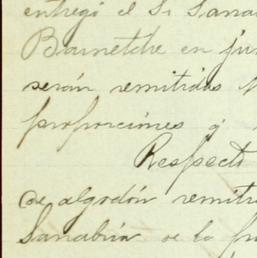 entregó el Sr Sana
Barnetche en ju
serán remitidos
proporciones q
Respecto
de algodón remiti
Sanabria se lo